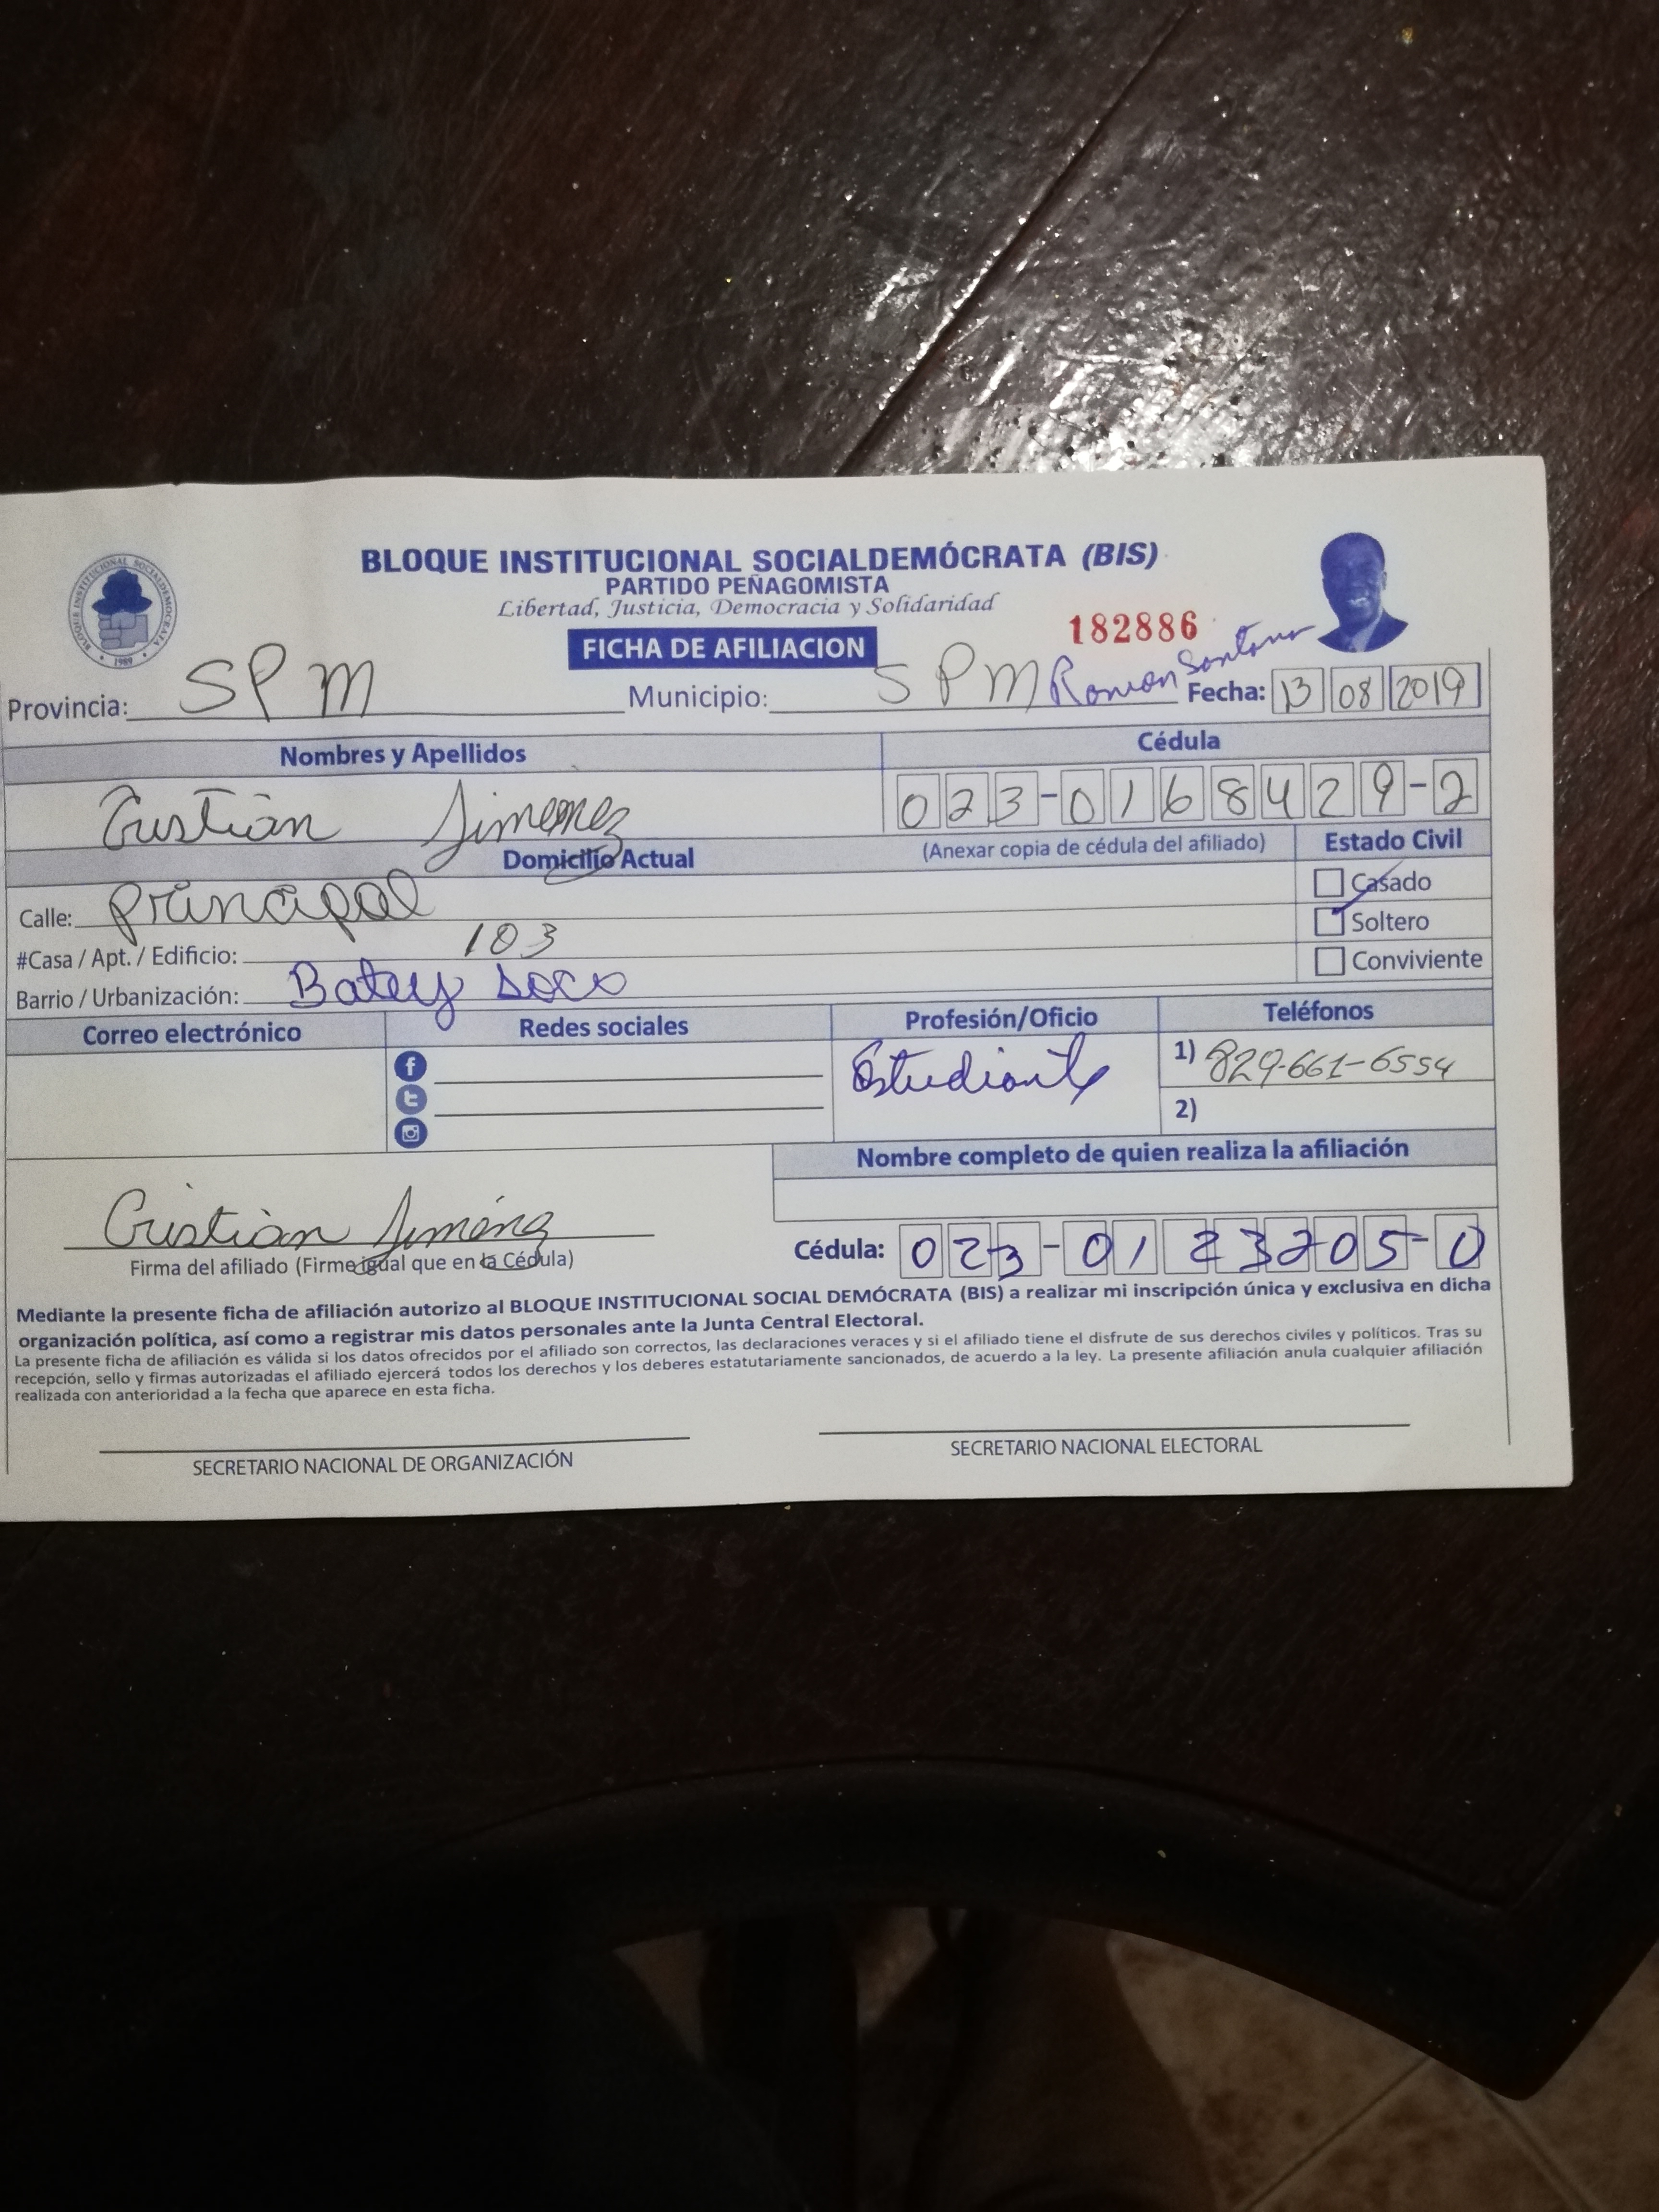 BLOQUE INSTITUCIONAL SOCIALDEMÓCRATA (BIS)
PARTIDO PEÑAGOMISTA
Libertad, Justicia, Democracia y Solidaridad
BLOQUE INSTITUCIONAL SOCIALDEMOCRATA
1989
182886
FICHA DE AFILIACION
Provincia: SPM Municipio: SPM Ramon Santana Fecha: 13 08 2019
Nombres y Apellidos Cédula
Cristian Jimenez 023-0168429-2
Domicilio Actual (Anexar copia de cédula del afiliado) Estado Civil
Calle: principal Casado
#Casa / Apt. / Edificio: 103 Soltero
Barrio / Urbanización: Batey soco Conviviente
Correo electrónico Redes sociales Profesión/Oficio Teléfonos
Estudiante 1) 829-661-6554
2)
Nombre completo de quien realiza la afiliación
Cristian Jiménez
Firma del afiliado (Firme igual que en la Cédula) Cédula: 023-0123205-0
Mediante la presente ficha de afiliación autorizo al BLOQUE INSTITUCIONAL SOCIAL DEMÓCRATA (BIS) a realizar mi inscripción única y exclusiva en dicha
organización política, así como a registrar mis datos personales ante la Junta Central Electoral.
La presente ficha de afiliación es válida si los datos ofrecidos por el afiliado son correctos, las declaraciones veraces y si el afiliado tiene el disfrute de sus derechos civiles y políticos. Tras su
recepción, sello y firmas autorizadas el afiliado ejercerá todos los derechos y los deberes estatutariamente sancionados, de acuerdo a la ley. La presente afiliación anula cualquier afiliación
realizada con anterioridad a la fecha que aparece en esta ficha.
SECRETARIO NACIONAL DE ORGANIZACIÓN SECRETARIO NACIONAL ELECTORAL